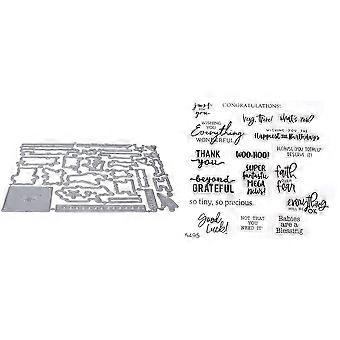 just
for
you
CONGRATULATIONS!
hey, there!
what's new?
WISHING
YOU
Everything
WONDERFUL
WISHING YOU THE
Happiest of Birthdays
BECAUSE YOU TOTALLY
DESERVE IT!
THANK
YOU
WOO-HOO!
SUPER
fantastic
MEGA
NEWS!
faith
over
fear
beyond
GRATEFUL
so tiny, so precious.
everything
WILL BE
OK
Good
Luck!
NOT THAT
YOU
NEED IT
Babies
are a
Blessing